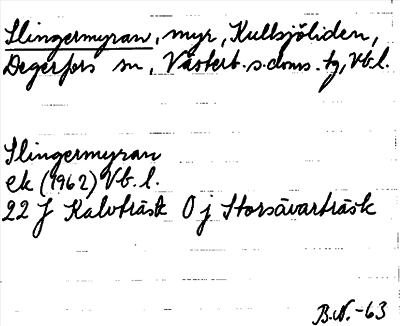 Slingermyran, myr, Kullsjöliden,
Degerfors sn, Västerb. s. doms. tg, Vb. l.
Slingermyran
ek (1962) Vb. l.
22 J Kalvträsk 0 j Storsävarträsk
B.N. -63